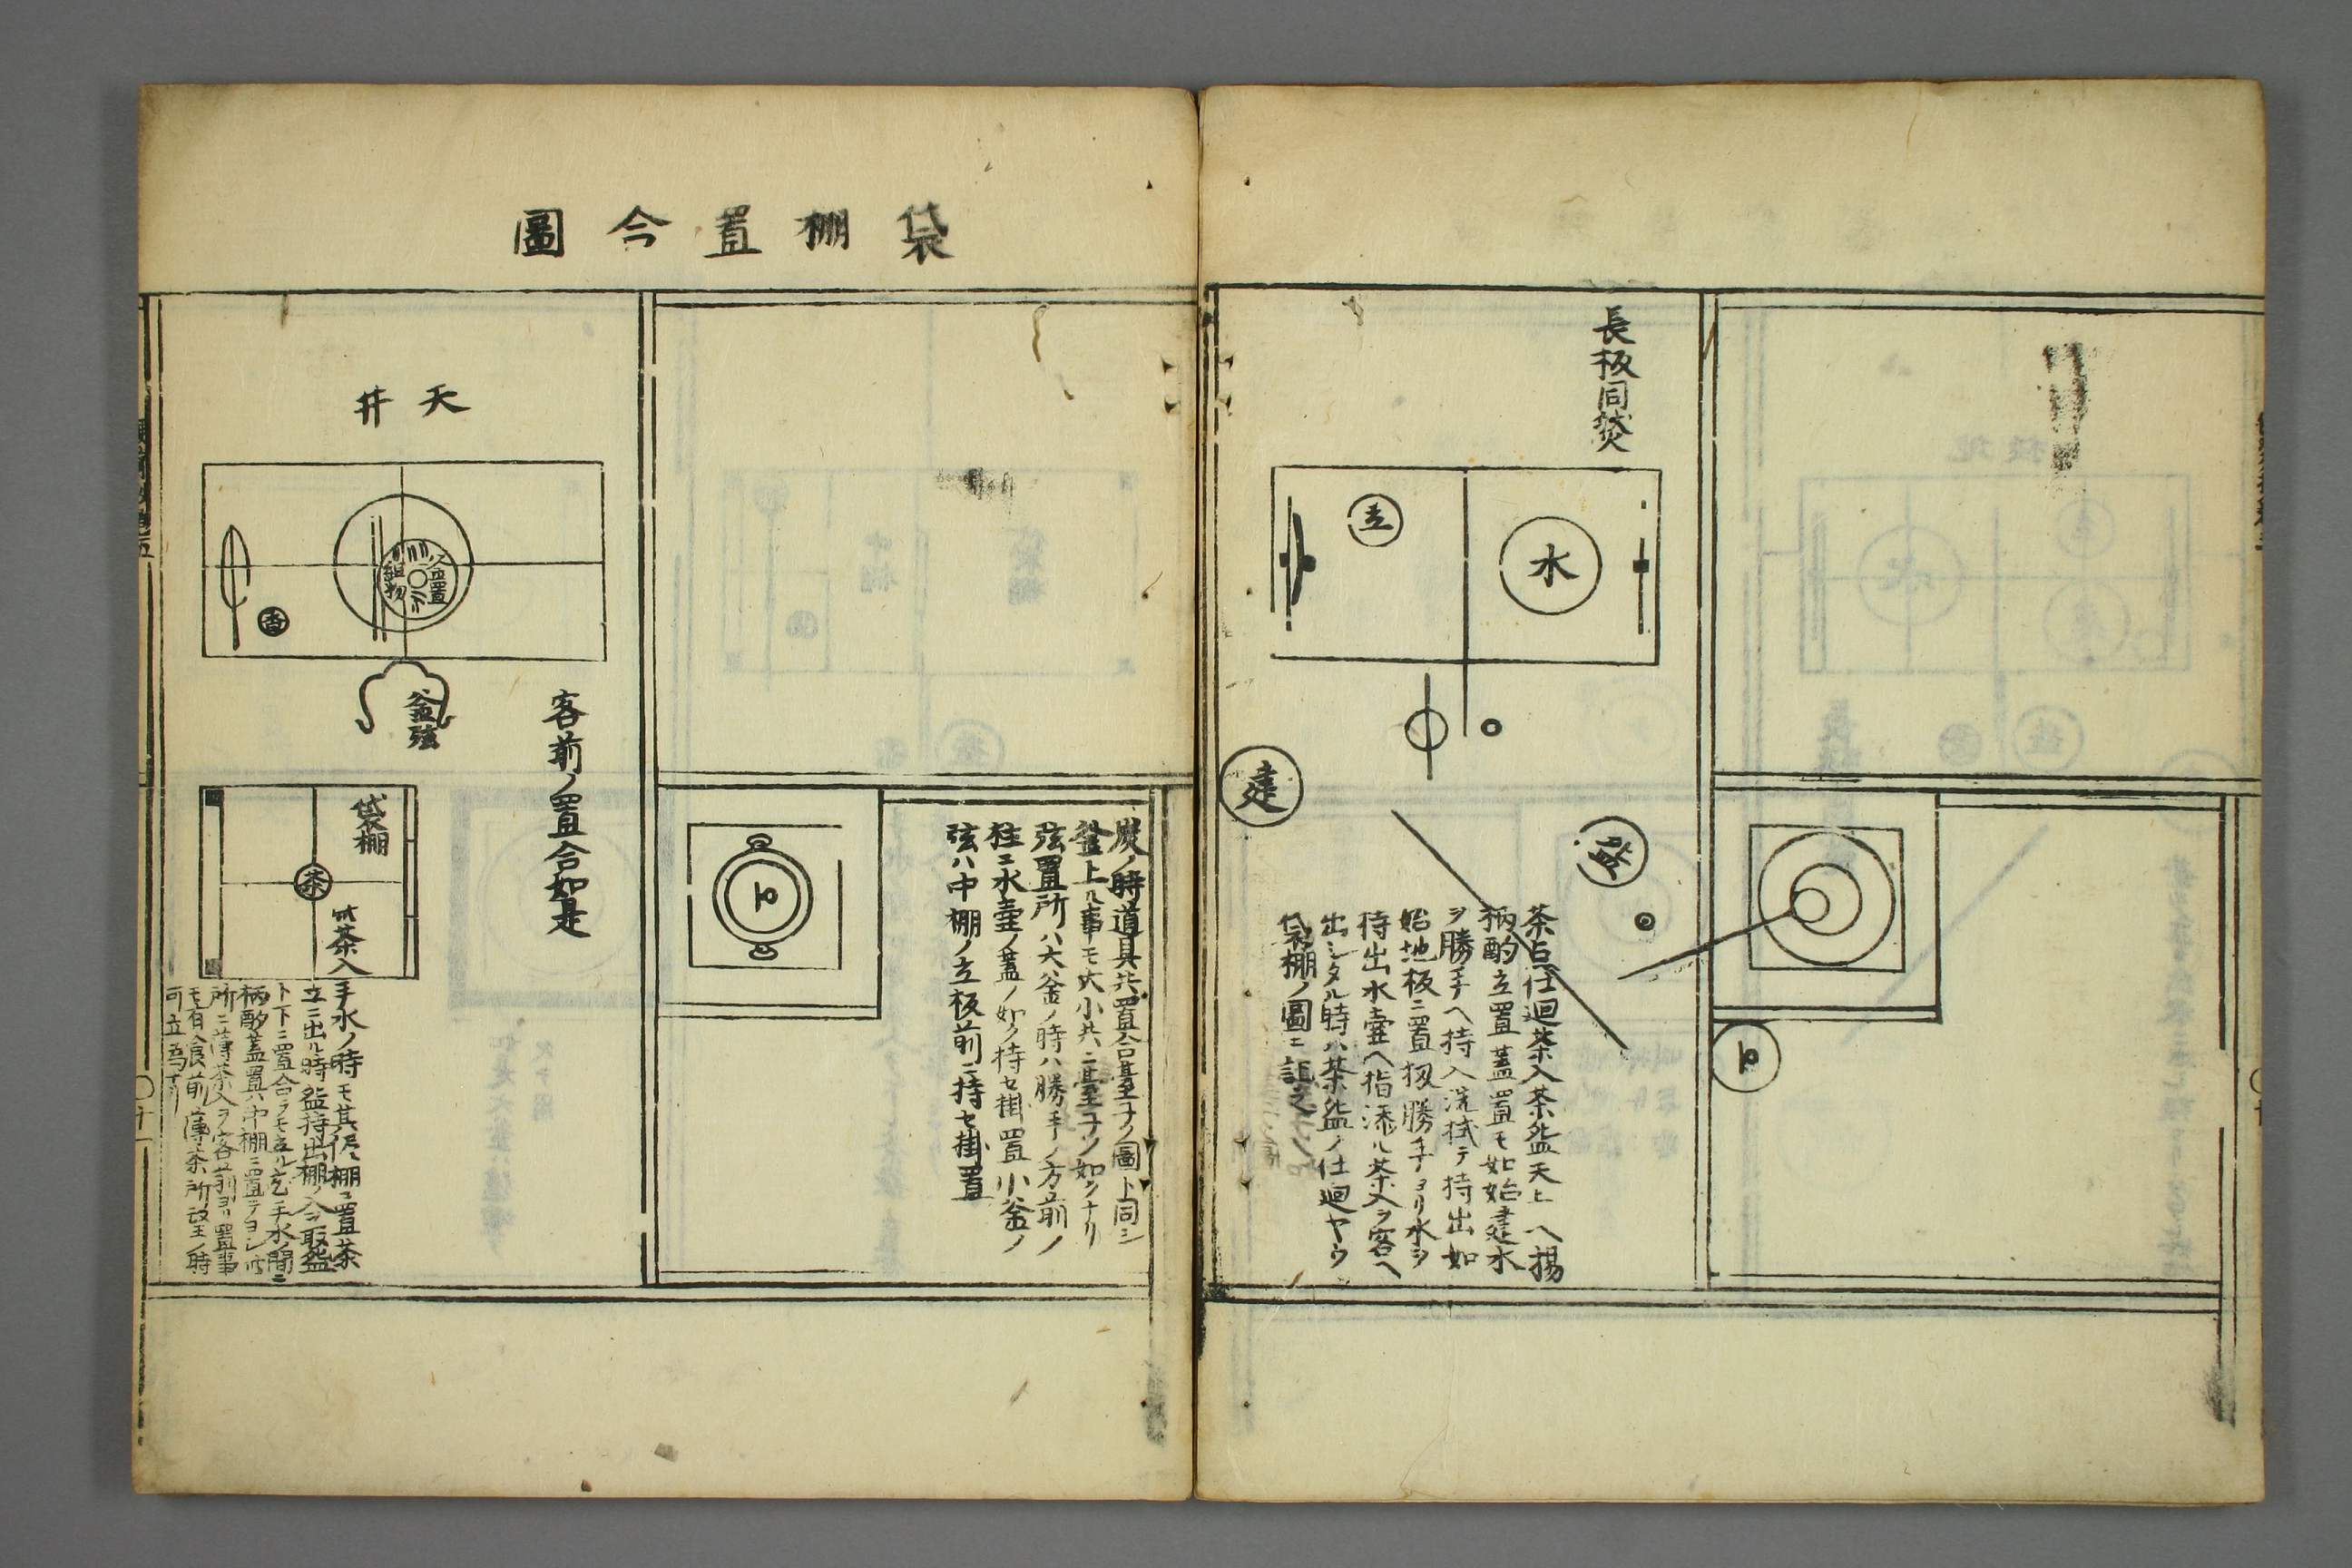 長板同𤎼
水
立
建
茶
占
茶占テ仕廻茶入茶盌天上ヘ揚
柄酌立置蓋置モ如始建水
ヲ勝手ヘ持入洗拭テ持出如
始地板ニ置扨勝手ヨリ水ヲ
待出水壷ヘ指添ル茶入ヲ客ヘ
出シタル時ハ茶盌ノ仕廻ヤウ
袋棚ノ圖ニ記之
袋棚置合圖
炭ノ時道具共置合臺子ノ圖ト同シ
釜上ル事モ大小共ニ臺子ノ如クナリ
弦置所ハ大釜ノ時ハ勝手ノ方前ノ
柱ニ水壷ノ蓋ノ如ク持セ掛置小釜ノ
弦ハ中棚ノ立板前ニ持セ掛置
天井
組物
香
釜弦
客前ノ置合如是
袋棚
茶
茶入
手水ノ時モ其侭棚ニ置茶
立ニ出ル時盌持出棚ノ入ヲ取盌
ト下ニ置合ラモ立ル也手水ノ間ニ
柄酌蓋置ハ中棚ニ置テヨシ
所ニ薄茶入ヲ客前ヨリ置事
モ有食前薄茶所望ノ時
可立為